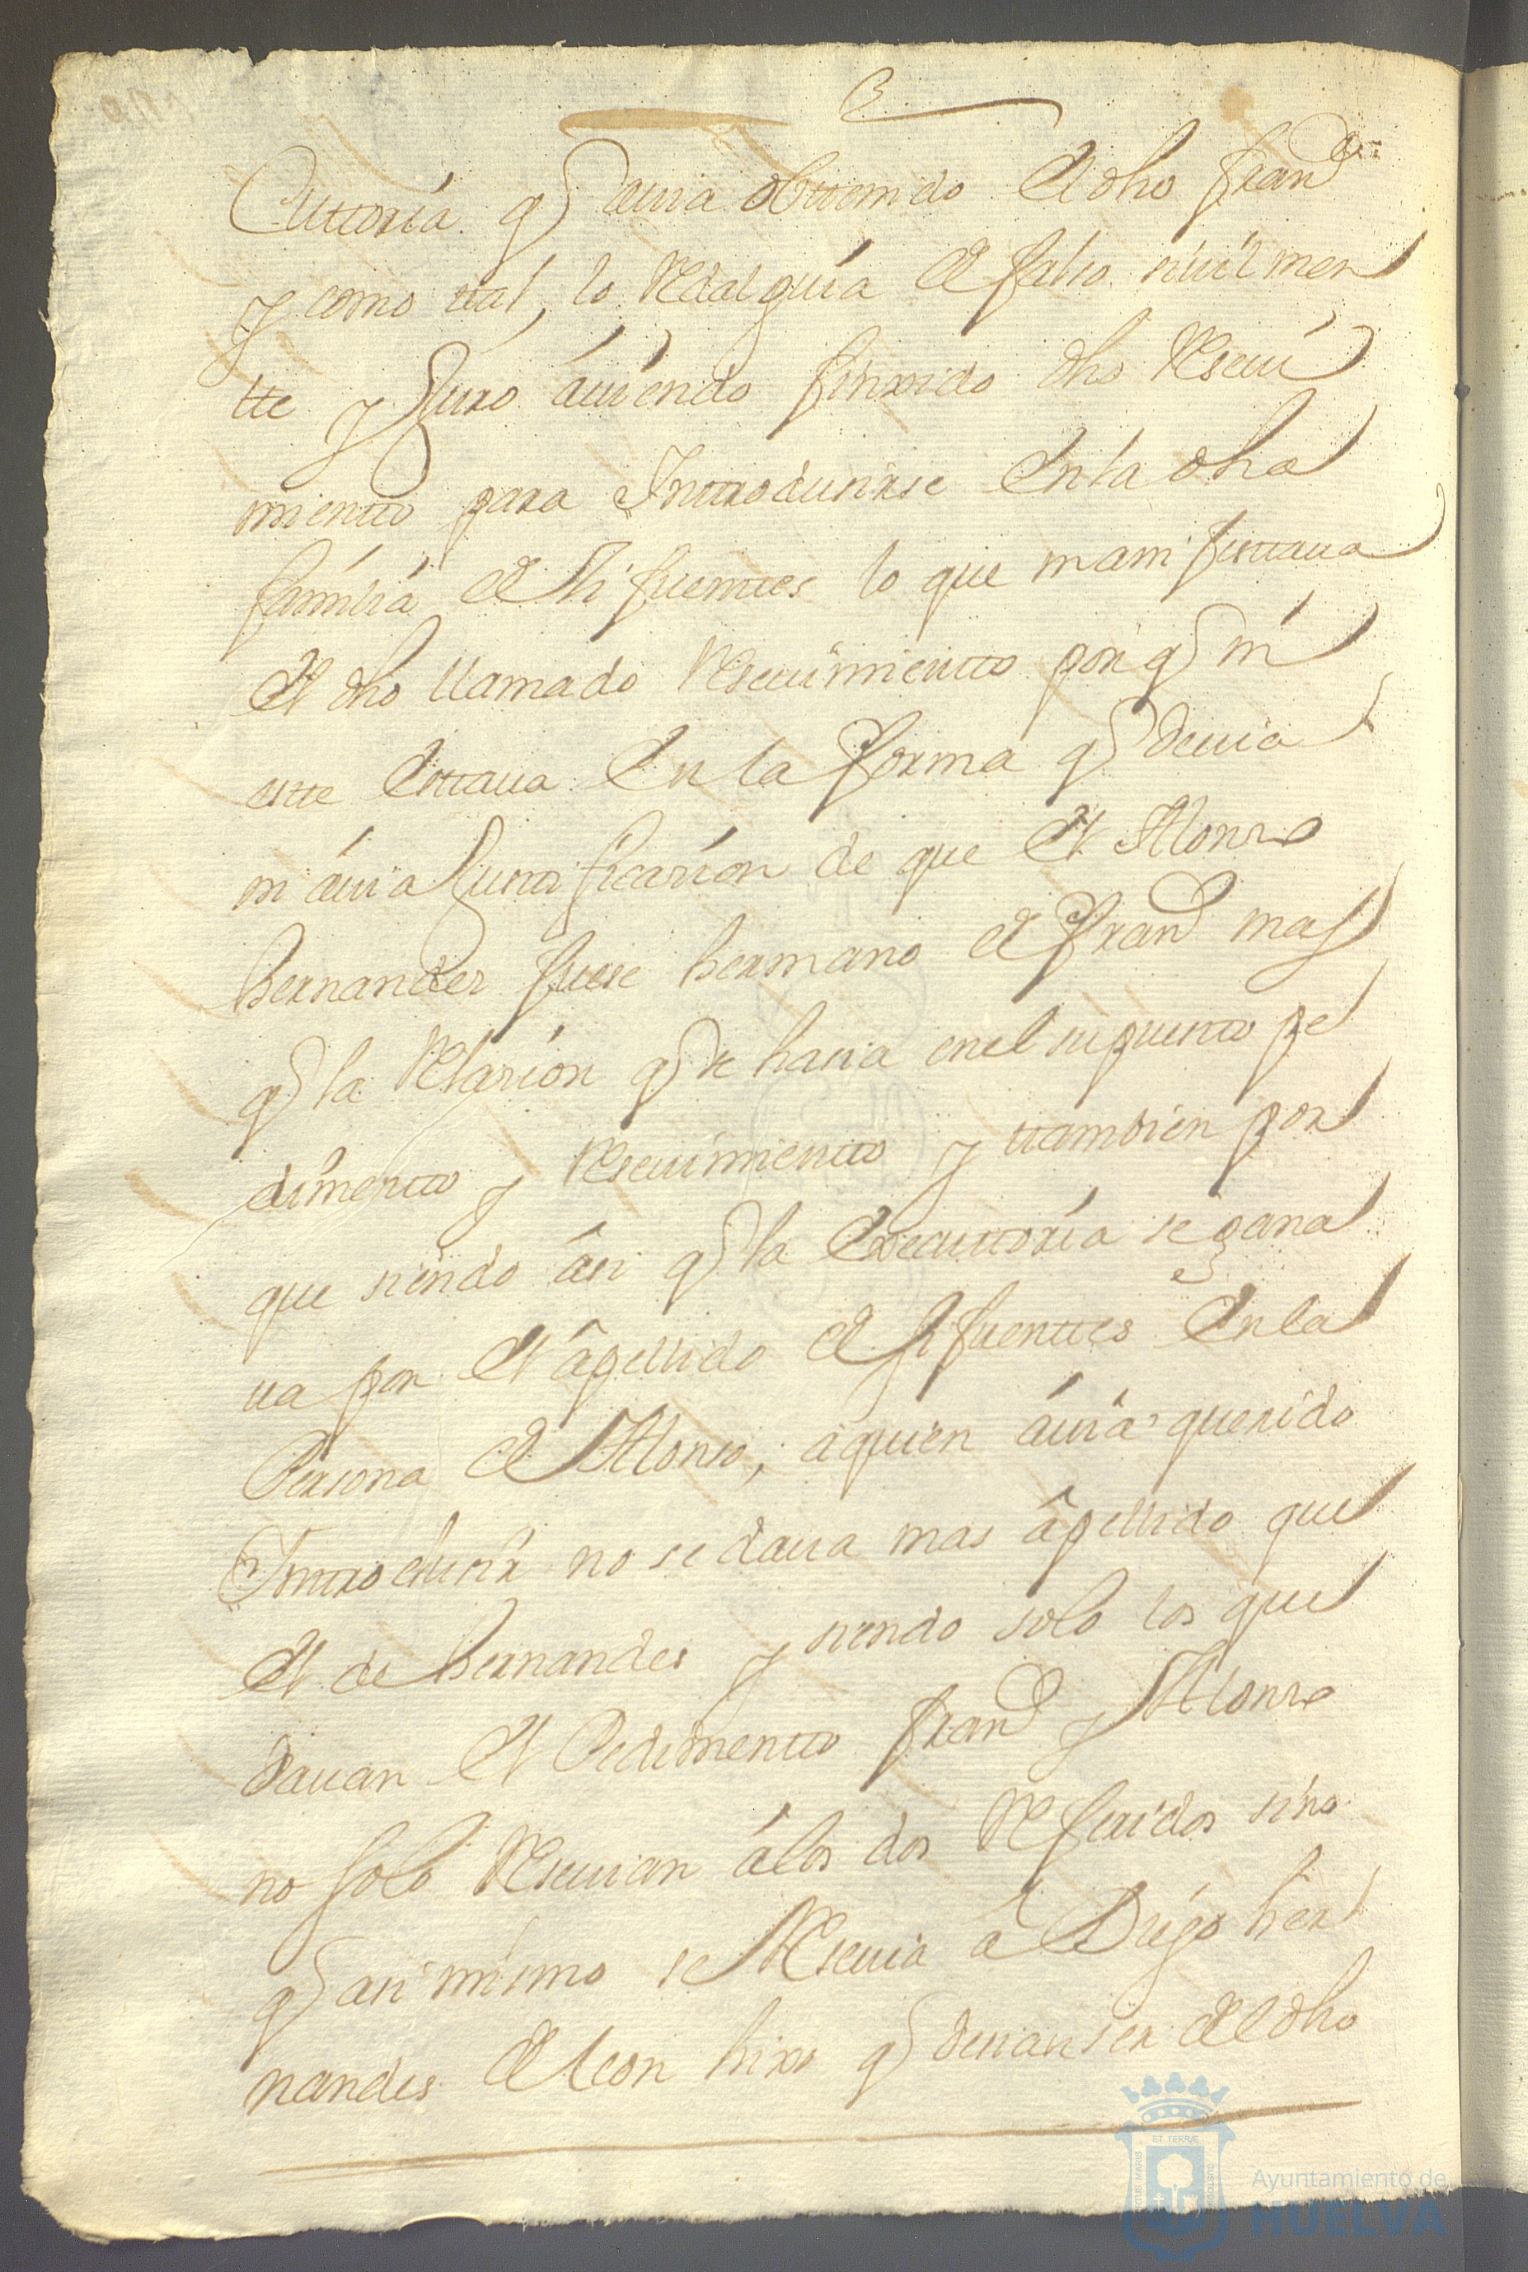 Cuttoria q̃ auia obttenido El dho fran.co
y como ttal, lo Redalguia de falso siuilmen
tte y Juro auiendo finxido dho Reseui
mientto para Inttroducirse En la dha
familia de Sifuenttes lo que manifesttaua
El dho llamado Reseuimientto por q̃ ni
estte Esttaua En la forma q̃ deuia
ni auia Justtificasion de que El Alonso
hernandes fuese hermano de fran.co mas
q̃ la Relasion q̃ se hasia en el supuestto pe
dimentto y Reseuimientto y ttambien por
que siendo asi q̃ la Executtoria se gana
ua por El apellido de Sifuenttes En la
Persona de Alonso, a quien auia querido
Inttrodusir no se daua mas apellido que
El de hernandes y siendo solo los que
dauan El Pedimentto fran.co y Alonso
no solo Reseuian a los dos Referidos sino
q̃ asi mismo se Reseuia a Diego her
nandes de leon hixo q̃ desian ser del dho
ET TERRÆ
Ayuntamiento de
HUELVA